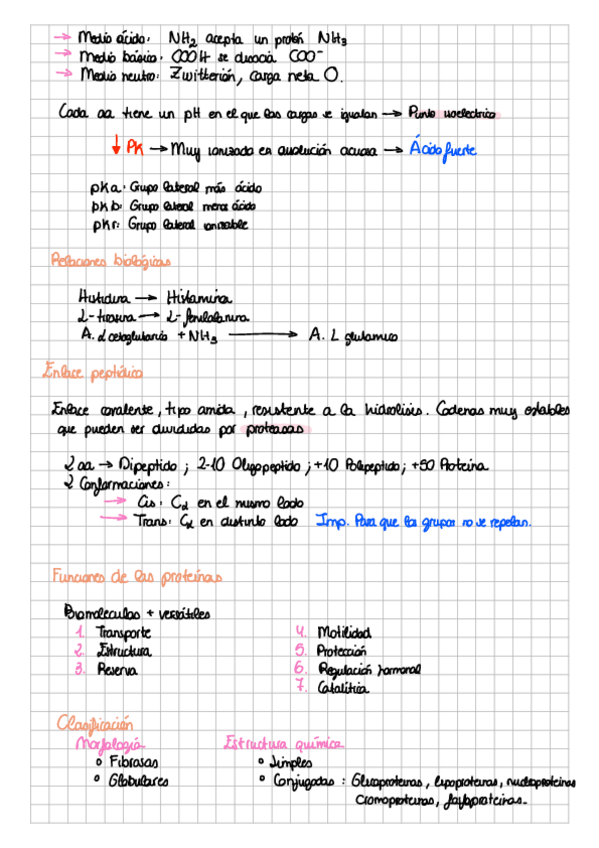 → Medio ácido: NH2 acepta un protón NH3
→ Medio básico: COOH se disocia COO⁻
→ Medio neutro: Zwitterión, carga neta 0.
Cada aa tiene un pH en el que las cargas se igualan → Punto isoeléctrico
↓ PK → Muy ionizado en disolución acuosa → Ácido fuerte
pka: Grupo lateral más ácido
pkb: Grupo lateral menos ácido
pkr: Grupo lateral ionizable
Relaciones biológicas
Histidina → Histamina
L-tirosina → L-fenilalanina
A. α cetoglutárico + NH3 → A. L glutamico
Enlace peptídico
Enlace covalente, tipo amida, resistente a la hidrolisis. Cadenas muy estables
que pueden ser divididas por proteasas
2 aa → Dipeptido ; 2-10 Oligopeptido ; +10 Polipeptido ; +50 Proteina
2 Conformaciones:
→ Cis: Cα en el mismo lado
→ Trans: Cα en distinto lado Imp. Para que los grupos no se repelan.
Funciones de las proteínas
Biomoleculas + versátiles
1. Transporte 4. Motilidad
2. Estructura 5. Protección
3. Reserva 6. Regulación hormonal
7. Catalítica
Clasificación
Morfología Estructura química
Fibrosas Simples
Globulares Conjugadas : Glicoproteinas, lipoproteinas, nucleoproteinas
Cromoproteinas, fosfoproteinas.